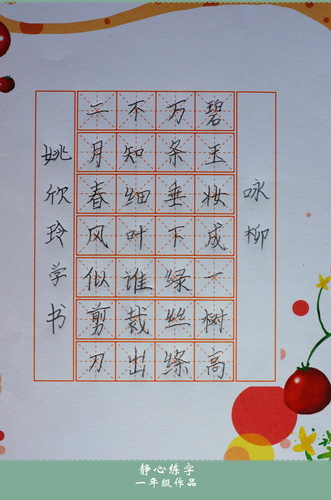 咏柳
碧玉妆成一树高
万条垂下绿丝绦
不知细叶谁裁出
二月春风似剪刀
姚欣玲学书
静心练字
一年级作品